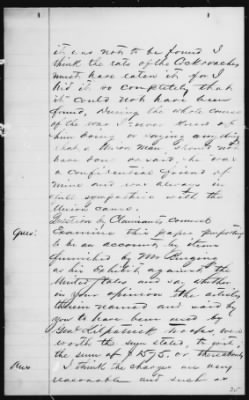 it was not to be found I
think the rats or the Cockroaches
must have eaten it for I
hid it so completely that
it could not have been
found, During the whole course
of the war I never knew of
him doing or saying anything
that a Union man should not
have done or said, he was
a confidential friend of
mine and was always in
full sympathie with the
Union cause.
Question by Claimants Counsel
Ques: Examine this paper purporting
to be an account by items
furnished by Mr
as his Exhibit against the
United States and say whether
in your opinion the articles
therein named and said by
you to have been used by
Genl Kilpatrick troops, were
worth the sum stated, to wit,
the sum of $ or thereabouts
Ans I think the charges are very
reasonable and such as